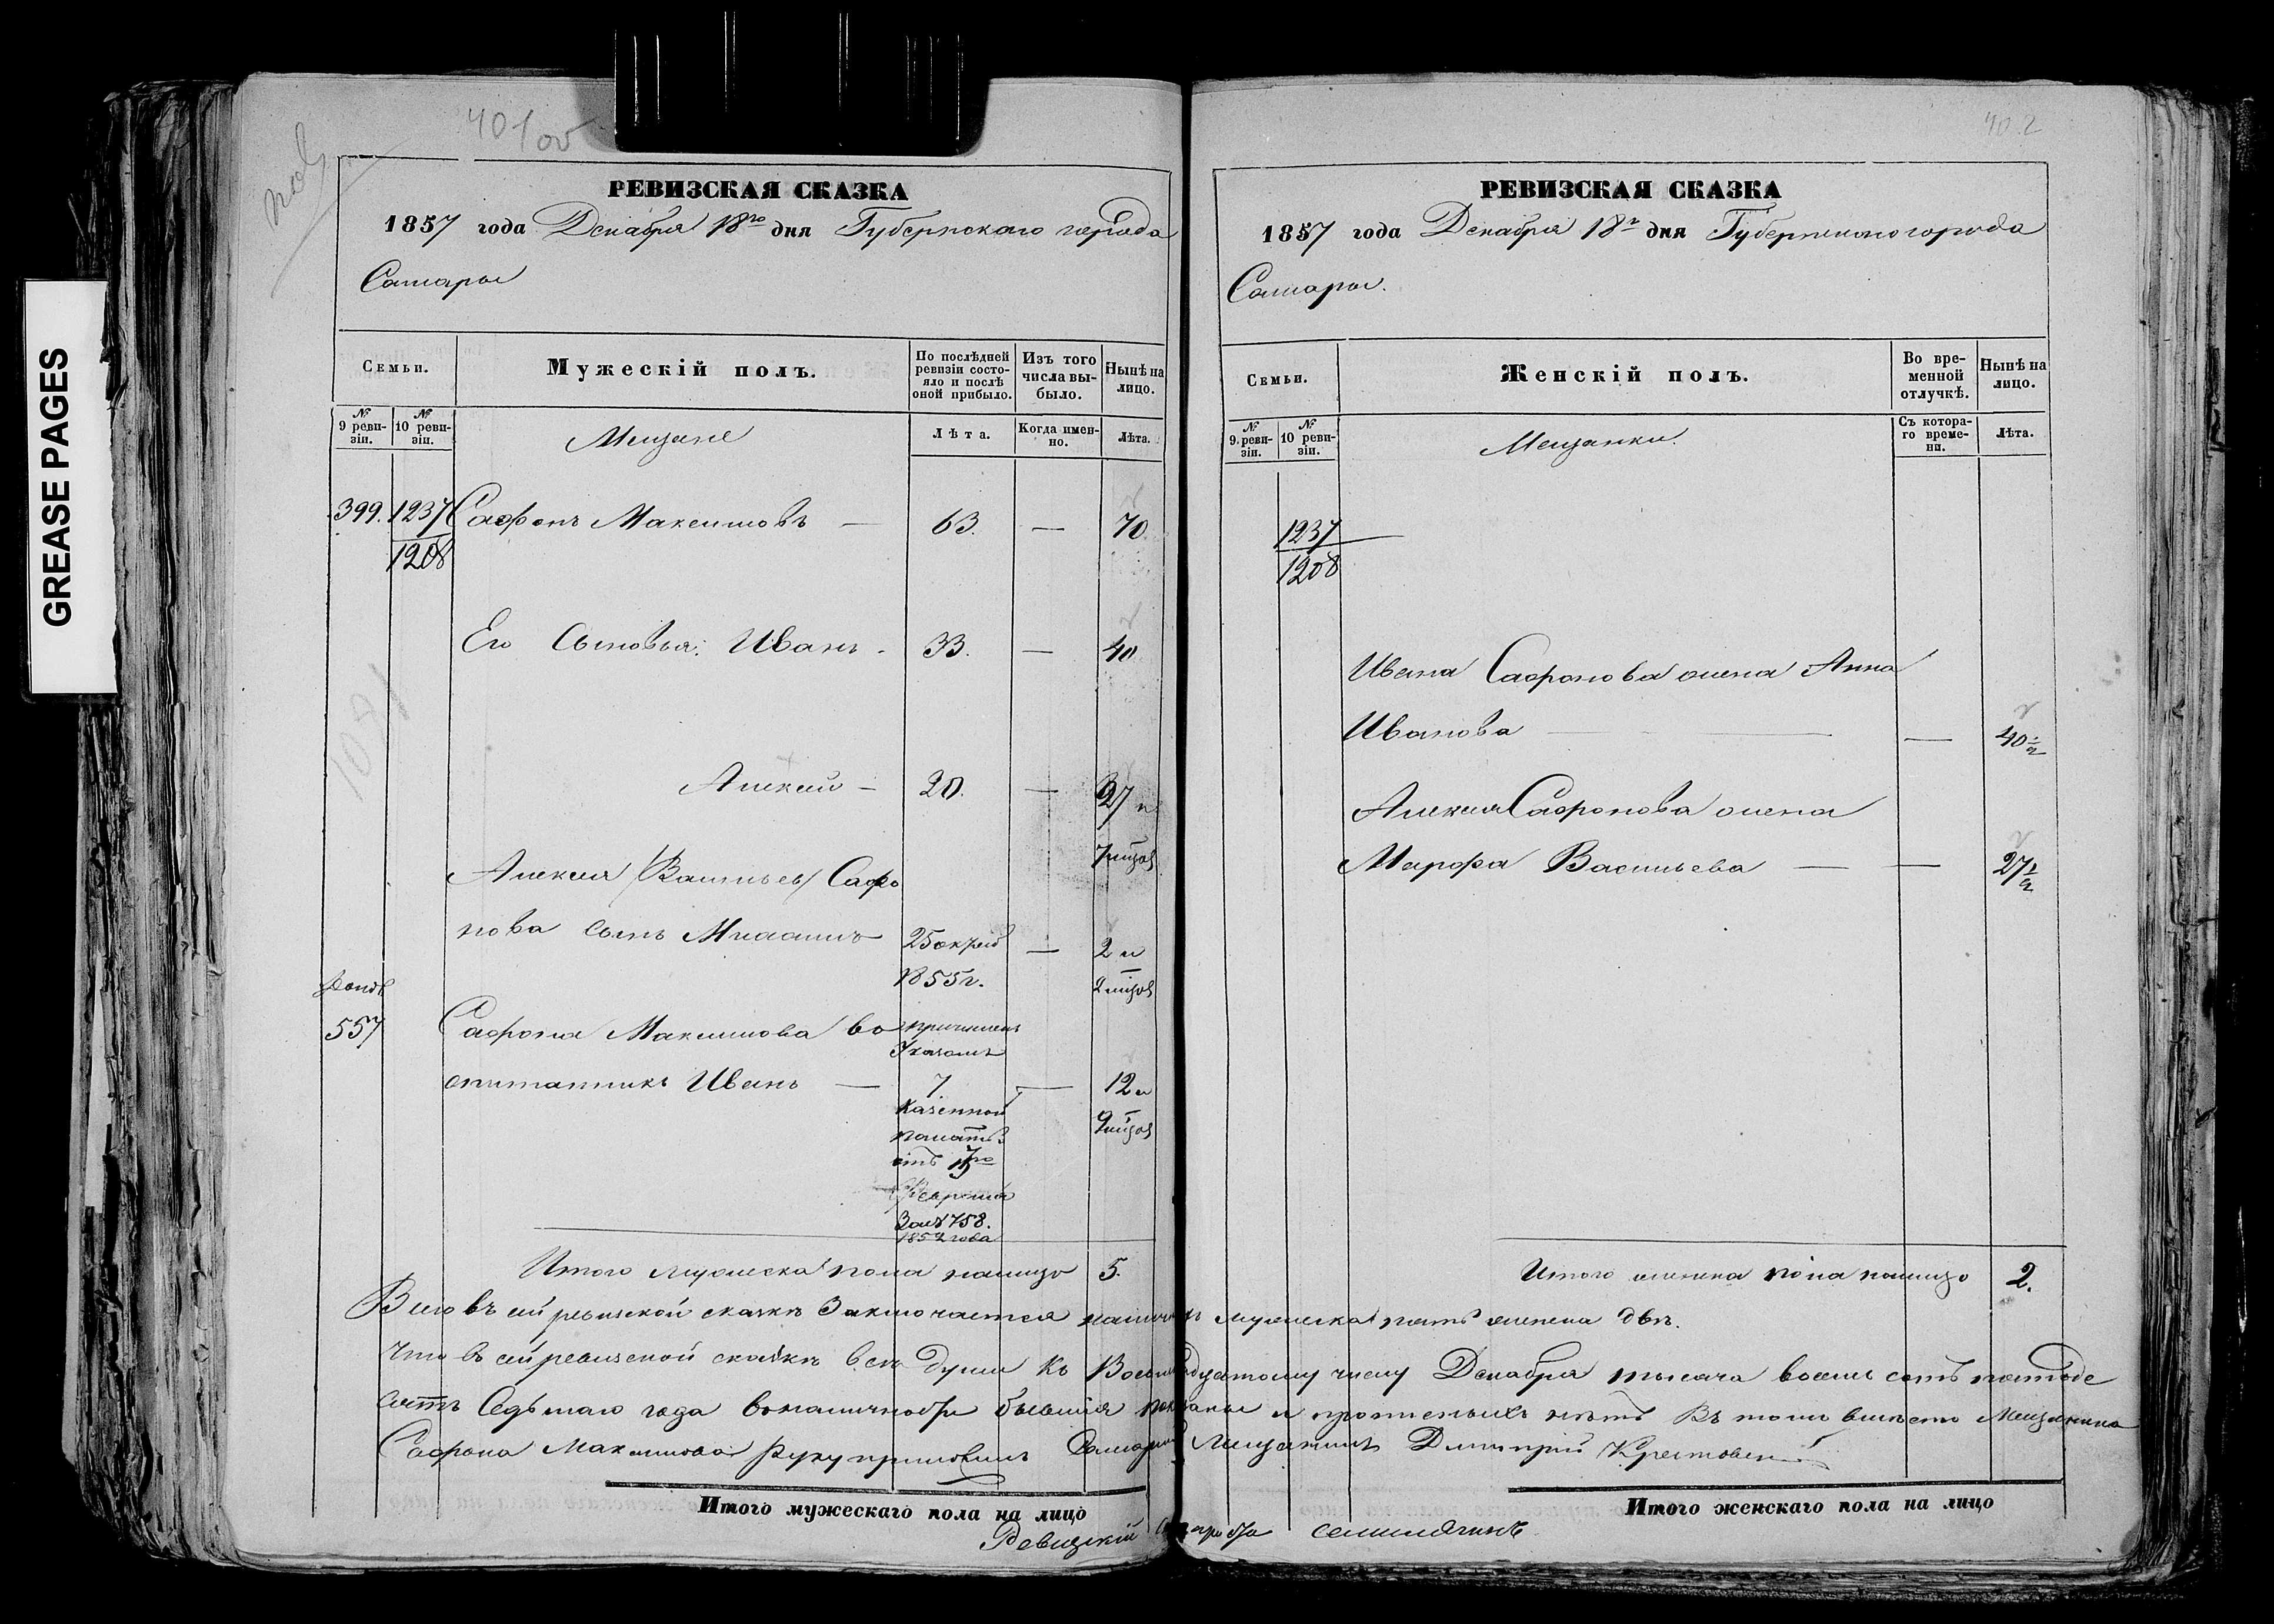 GREASE PAGES
401 об
402
РЕВИЗСКАЯ СКАЗКА
1857 года Декабря 18го дня Губернскаго города
Самары
Семьи.
Мужескій полъ.
По послѣдней ревизіи состояло и послѣ оной прибыло.
Изъ того числа выбыло.
Нынѣ на лицо.
№ 9 ревизіи.
№ 10 ревизіи.
Мещане
Лѣта.
Когда именно.
Лѣта.
399. 1237 Сафонъ Максимовъ — 63. — 70
1208
Его Сыновья: Иванъ. 33. — 40
Алексей — 20. — 27 и
7 мцов
Алексея /Васильев/ Сафо
нова сынъ 25 октяб — 2 и
1855 г. 2 мцов
557 Сафона Максимова во причислен
Указомъ
спитанникъ Иванъ — 7. — 12 и
Казенной 9 мцов
палаты
отъ
Февраля
За № 758.
1852 года
Итого мужеска пола налицо 5.
РЕВИЗСКАЯ СКАЗКА
1857 года Декабря 18го дня Губернскаго города
Самары.
Семьи.
Женскій полъ.
Во временной отлучкѣ.
Нынѣ на лицо.
№ 9. ревизіи.
№ 10 ревизіи.
Мещанки.
Съ котораго времени.
Лѣта.
1237
1208
Ивана Сафонова жена Анна
Иванова — — 40
Алексея Сафонова жена
Марфа Васильева — — 27
Итого женска пола налицо 2.
Всего въ сей ревизской сказкѣ Заключается налицо мужеска пять женска двѣ.
Что въ сей ревизской сказкѣ всѣ души къ Восемнадцатому числу Декабря тысяча восемь сотъ пятьде
сятъ Седьмаго года в наличности бывшия показаны и прописныхъ нѣтъ Въ томъ вместо Мещанина
Сафона Максимова руку приложилъ Самарский Мещанинъ Дмитрій
Итого мужескаго пола на лицо
Итого женскаго пола на лицо